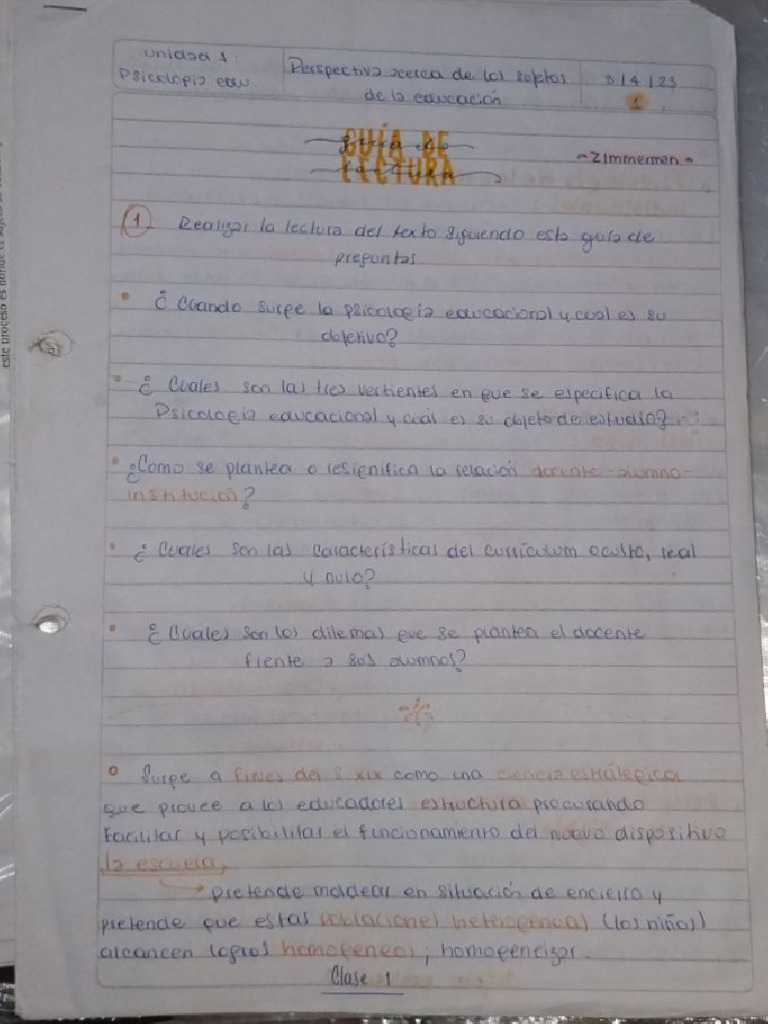 Unidad 1:
Psicologia edu.
Perspectiva acerca de los sujetos
de la educación
3/4/23
1
GUÍA DE
LECTURA
guia de
lectura
~Zimmermen~
① Realizar la lectura del texto siguiendo esta guia de
preguntas.
• ¿Cuando surge la psicologia educacional y cual es su
objetivo?
• ¿Cuales son las tres vertientes en que se especifica la
Psicologia educacional y cuál es su objeto de estudio?
• ¿Como se plantea o resignifica la relación docente-alumno-
institución?
• ¿Cuales son las características del currículum oculto, real
y nulo?
• ¿Cuales son los dilemas que se plantea el docente
frente a sus alumnos?
° Surge a fines del S XIX como una ciencia estrátegica
que provee a los educadores estructura procurando
Facilitar y posibilitar el funcionamiento del nuevo dispositivo
la escuela,
→ pretende moldear en situación de encierro y
pretende que estas poblaciones heterogeneas (los niños)
alcancen logros homogeneos, homogeneizar.
Clase 1